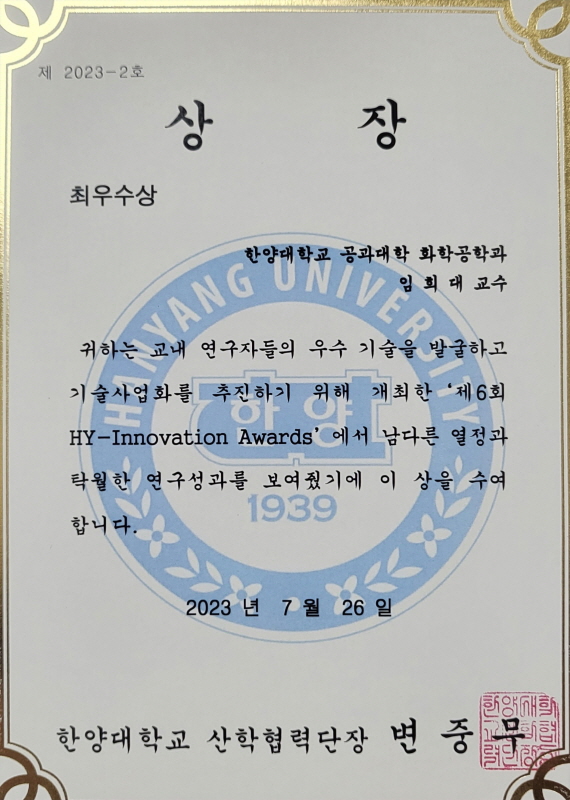 제 2023-2호
상 장
최우수상
한양대학교 공과대학 화학공학과
임 희 대 교수
HANYANG UNIVERSITY
귀하는 교내 연구자들의 우수 기술을 발굴하고
기술사업화를 추진하기 위해 개최한 '제6회
한양
HY-Innovation Awards' 에서 남다른 열정과
탁월한 연구성과를 보여줬기에 이 상을 수여
1939
합니다.
2023 년 7 월 26 일
한양대학교 산학협력단장 변 중 무